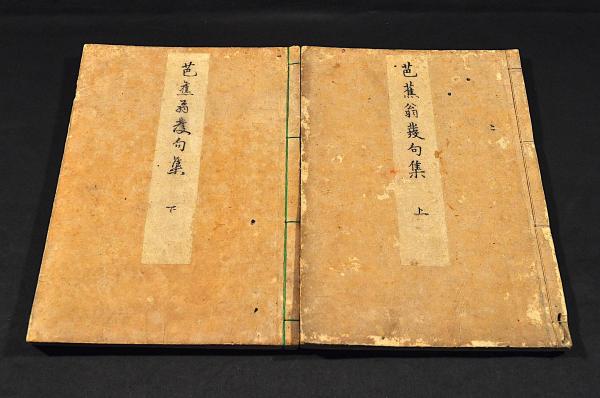 芭蕉翁發句集
上
芭蕉翁發句集
下